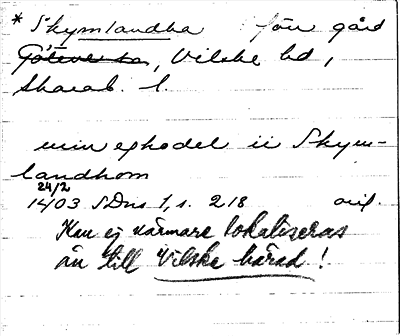 * Skymlandha förr gård
Götene sn, Vilske hd,
Skarab. l.
min ephodel ii Skym-
landhom
24/2
1403 SDns 1, s. 218 avif.
Kan ej närmare lokaliseras
än till Vilske härad!